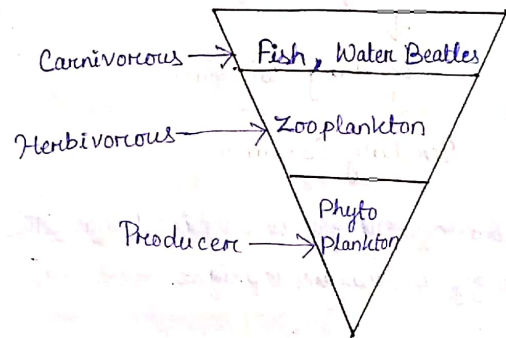 Carnivorous → Fish, Water Beatles
Herbivorous → Zooplankton
Phyto
Producer → plankton